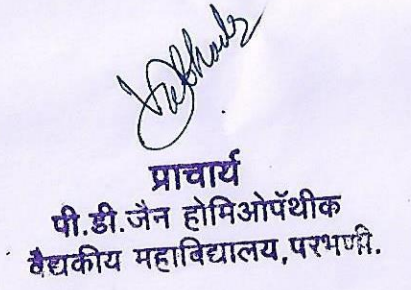 प्राचार्य
पी.डी.जैन होमिओपॅथीक
वैद्यकीय महाविद्यालय,परभणी.